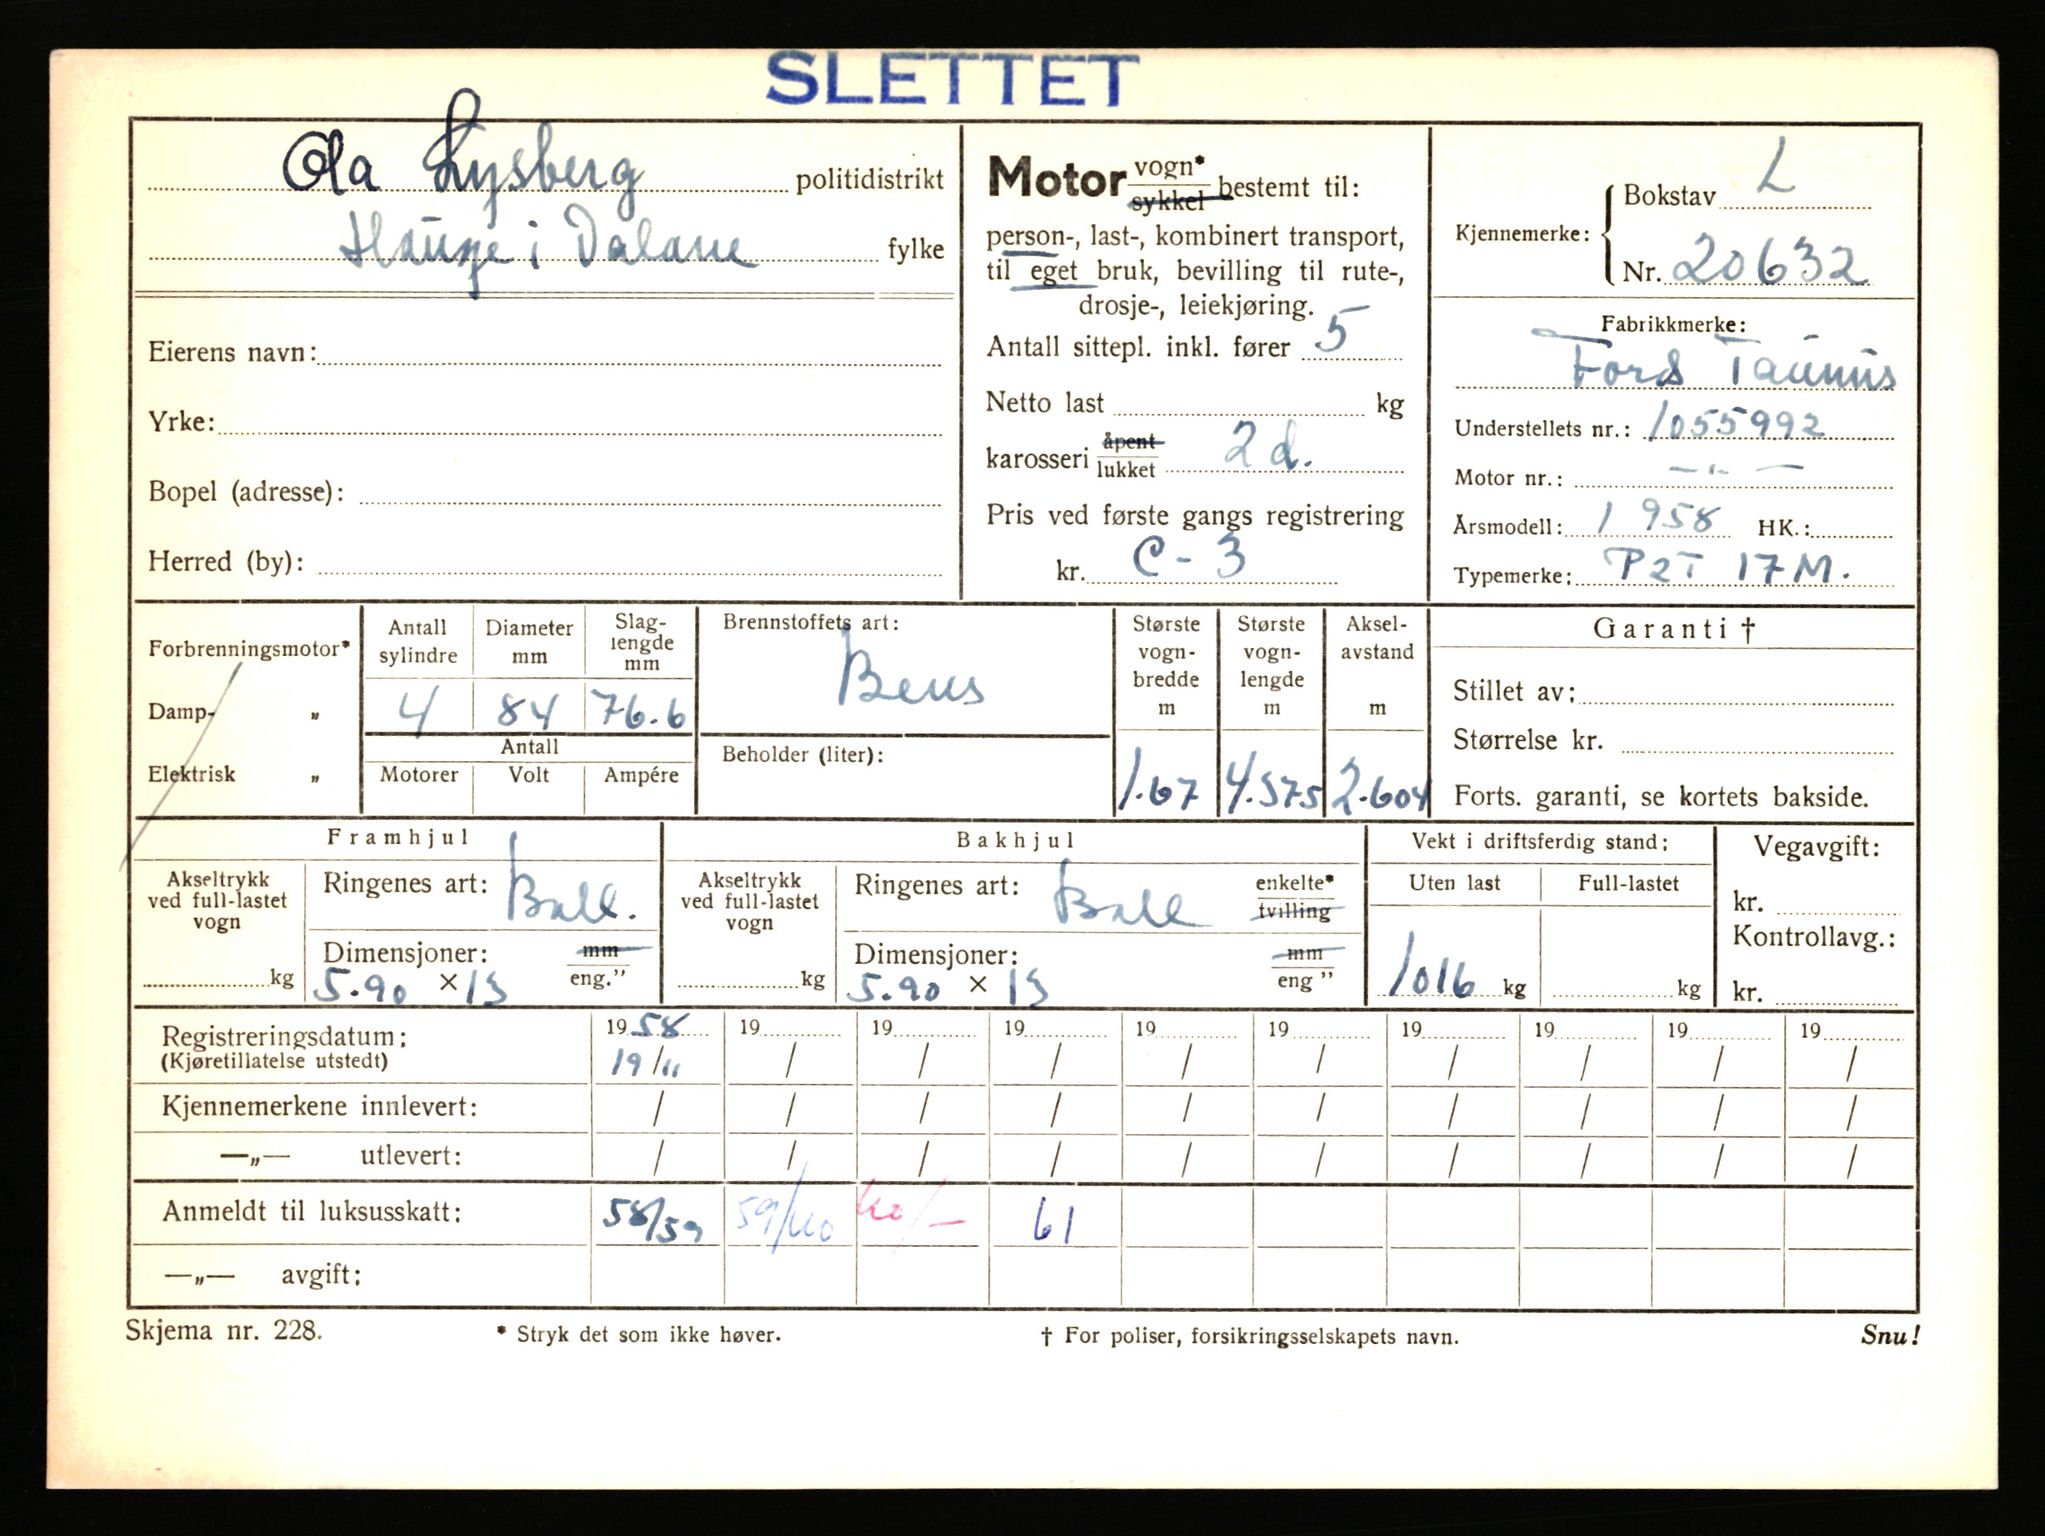 SLETTET
Ola Lysberg politidistrikt
Hauge i Dalane fylke
Eierens navn:
Yrke:
Bopel (adresse):
Herred (by):
Motor vogn* sykkel bestemt til:
person-, last-, kombinert transport,
til eget bruk, bevilling til rute-,
drosje-, leiekjøring.
Antall sittepl. inkl. fører 5
Netto last kg
karosseri åpent lukket 2 d.
Pris ved første gangs registrering
kr. C-3
Kjennemerke: Bokstav L
Nr. 20632
Fabrikkmerke:
Ford Taunus
Understellets nr.: 1055992
Motor nr.: — " —
Årsmodell: 1958 HK.:
Typemerke: P2T 17M.
Forbrenningsmotor*
Damp- „
Elektrisk „
Antall sylindre
Diameter mm
Slag-
lengde
mm
4 84 76.6
Antall
Motorer Volt Ampére
Brennstoffets art:
Bens
Beholder (liter):
Største
vogn-
bredde
m
1.67
Største
vogn-
lengde
m
4.575
Aksel-
avstand
m
2.604
Garanti †
Stillet av:
Størrelse kr.
Forts. garanti, se kortets bakside.
Framhjul
Akseltrykk
ved full-lastet
vogn
kg
Ringenes art: Ball.
Dimensjoner: mm eng."
5.90 × 13
Bakhjul
Akseltrykk
ved full-lastet
vogn
kg
Ringenes art: Ball enkelte* tvilling
Dimensjoner: mm eng"
5.90 × 13
Vekt i driftsferdig stand:
Uten last Full-lastet
1016 kg kg
Vegavgift:
kr.
Kontrollavg.:
kr.
Registreringsdatum: 1958 19 19 19 19 19 19 19 19 19
(Kjøretillatelse utstedt) 19/11 / / / / / / / / /
Kjennemerkene innlevert: / / / / / / / / / /
—„— utlevert: / / / / / / / / / /
Anmeldt til luksusskatt: 58/59 59/60 60/- 61
—„— avgift:
Skjema nr. 228. * Stryk det som ikke høver. † For poliser, forsikringsselskapets navn. Snu!